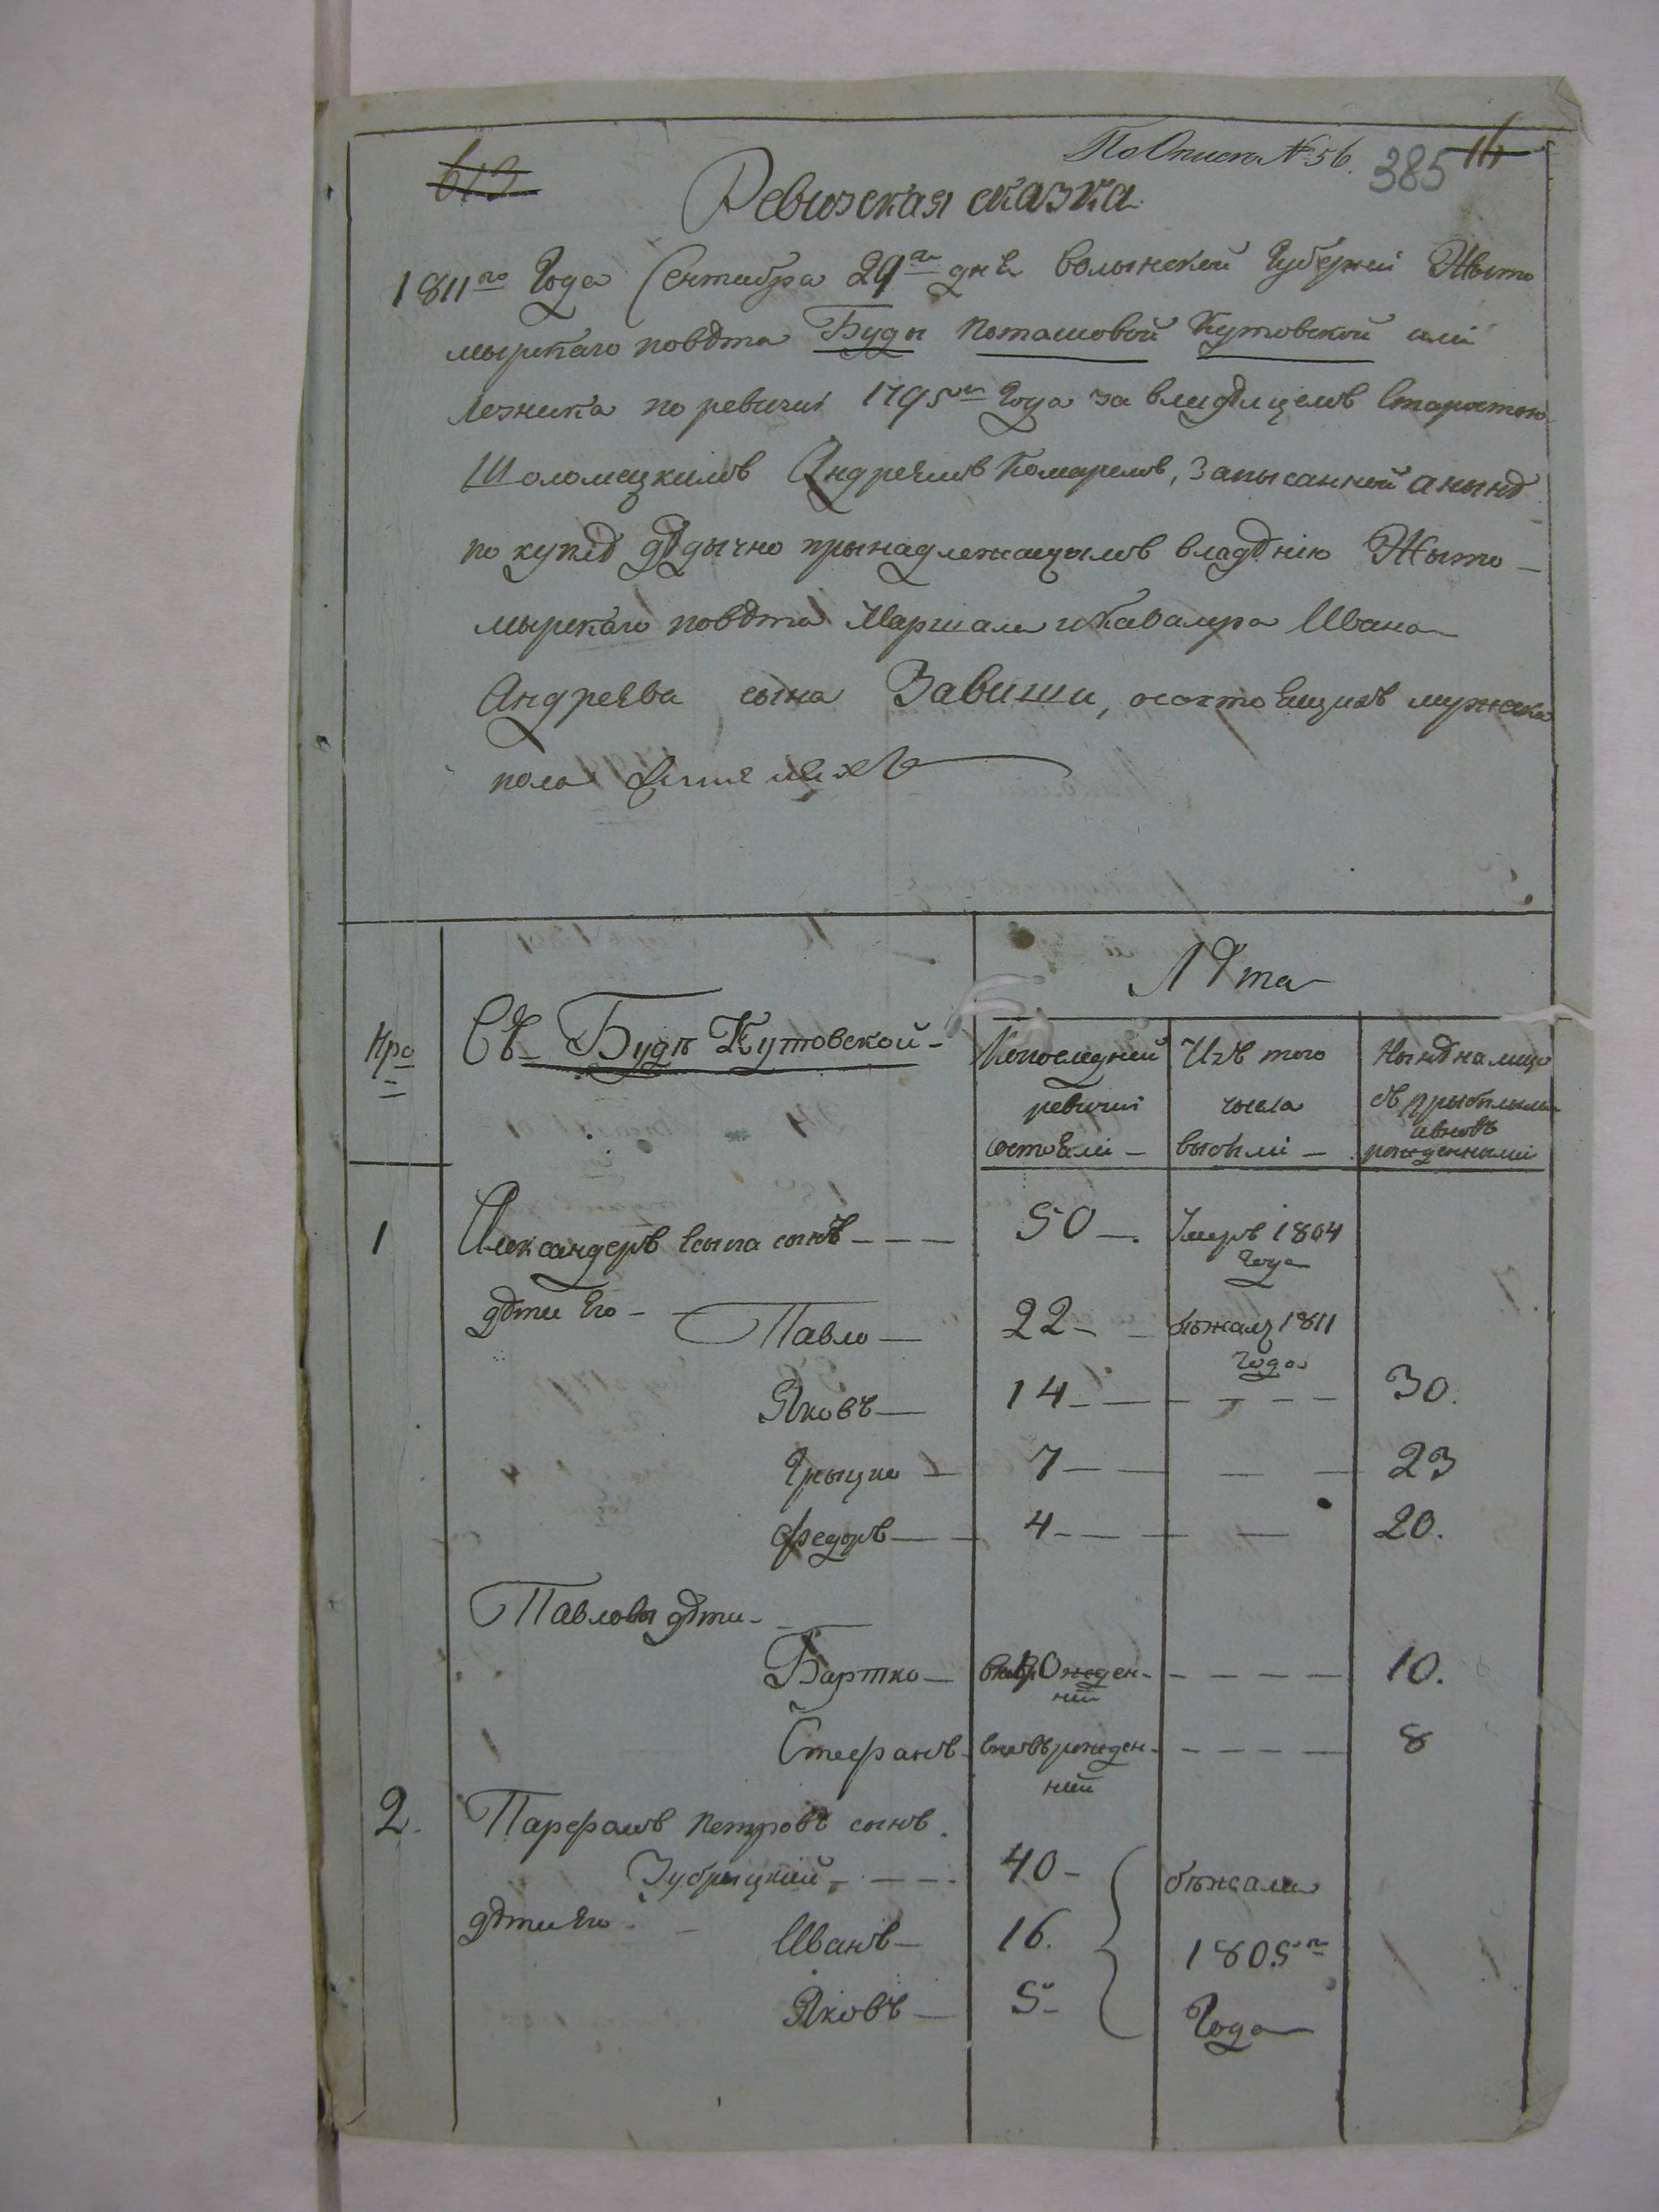 613
По Описи № 56. 385 16
Ревизская сказка
1811го Года Сентября 29го дня волынской Губерніи Жыто
мырскаго повѣта Буды поташовой Кутовской или
лезника по ревизіи 1795го Года за владѣлцемъ Старостою
Шоломецкимъ Андреемъ Комаремъ, Запысанной а нынѣ
по куплѣ дѣдычно прынадлежащымъ владѣнію Жыто-
мырскаго повѣта Маршала и Кавалѣра Ивана
Андреева сына Завиши, о состоящихъ мужска
пола
Нро
Съ Буды Кутовской
Лѣта
По последней
ревизіи
состояли
Изъ того
числа
выбыли
Нынѣ на лицо
съ прыбылыми
и вновь
рожденными
1 Александеръ сынъ 50 Умеръ 1804
Года
дѣти Его Павло 22 бѣжалъ 1811
Года
Яковъ 14 30.
Грыцко 7 23
Федоръ 4 20.
Павловы дѣти
Бартко вновь рожден- 10.
ній
Стефанъ вновь рожден- 8
ній
2. Парфамъ Петровъ сынъ
Зубрыцкий 40
дѣти Его Иванъ 16.
Яковъ 5
бѣжали
1805го
Года